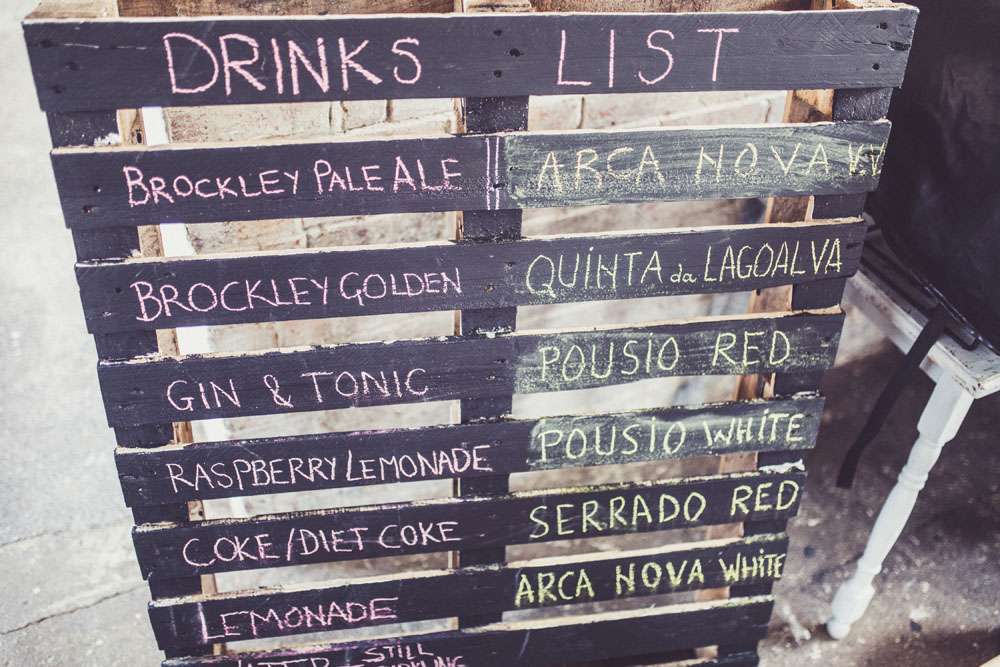 DRINKS LIST
BROCKLEY PALE ALE
ARCA NOVA VV
BROCKLEY GOLDEN
QUINTA da LAGOALVA
GIN & TONIC
POUSIO RED
RASPBERRY LEMONADE
POUSIO WHiTE
COKE/DIET COKE
SERRADO RED
LEMONADE
ARCA NOVA WHiTE
STILL